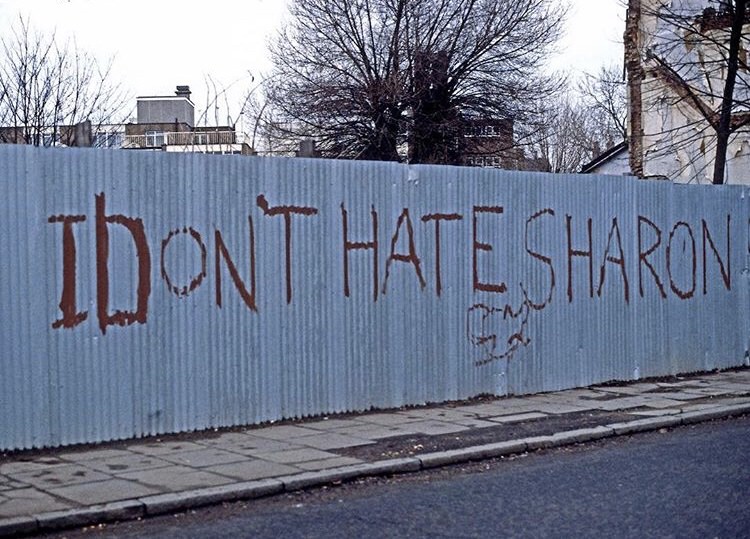 I DON'T HATE SHARON